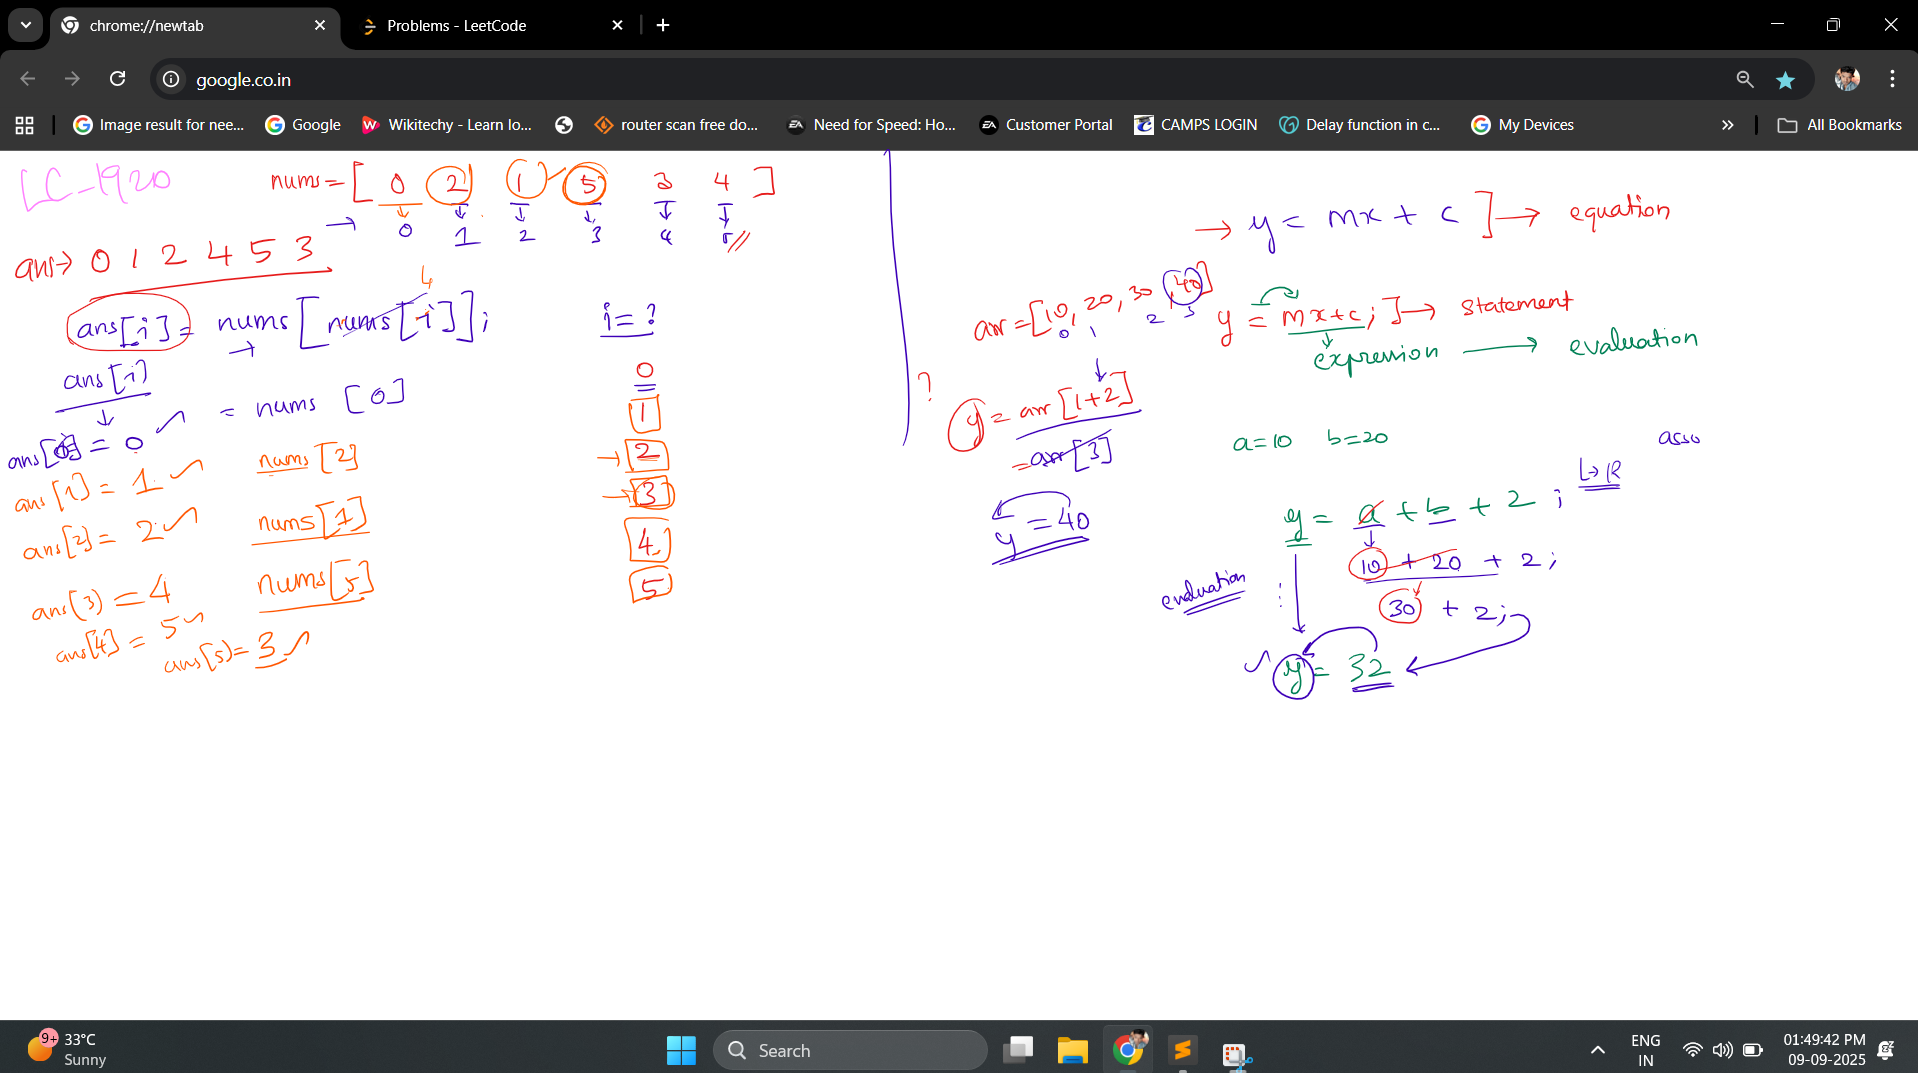 chrome://newtab
Problems - LeetCode
google.co.in
Image result for nee...
Google
Wikitechy - Learn lo...
router scan free do...
Need for Speed: Ho...
Customer Portal
CAMPS LOGIN
Delay function in c...
My Devices
All Bookmarks
LC-1920
nums = [ 0 2 1 5 3 4 ]
→ 0 1 2 3 4 5
ans → 0 1 2 4 5 3
4
ans[i] = nums[nums[i]];
i = ?
ans[i]
= nums [0]
ans[0] = 0
ans[1] = 1
nums [2]
ans[2] = 2
nums[1]
ans(3) = 4
nums[5]
ans[4] = 5
ans[5] = 3
0
1
→ 2
→ 3
4
5
→ y = mx + c ] → equation
arr = [10, 20, 30, 40]
0 1 2 3
y = mx+c; ] → statement
expression → evaluation
?
y = arr [1+2]
= arr [3]
y = 40
a=10 b=20
asso
L→R
y = a + b + 2 ;
10 + 20 + 2;
evaluation
30 + 2;
y = 32
9+
33°C
Sunny
Search
ENG
IN
01:49:42 PM
09-09-2025